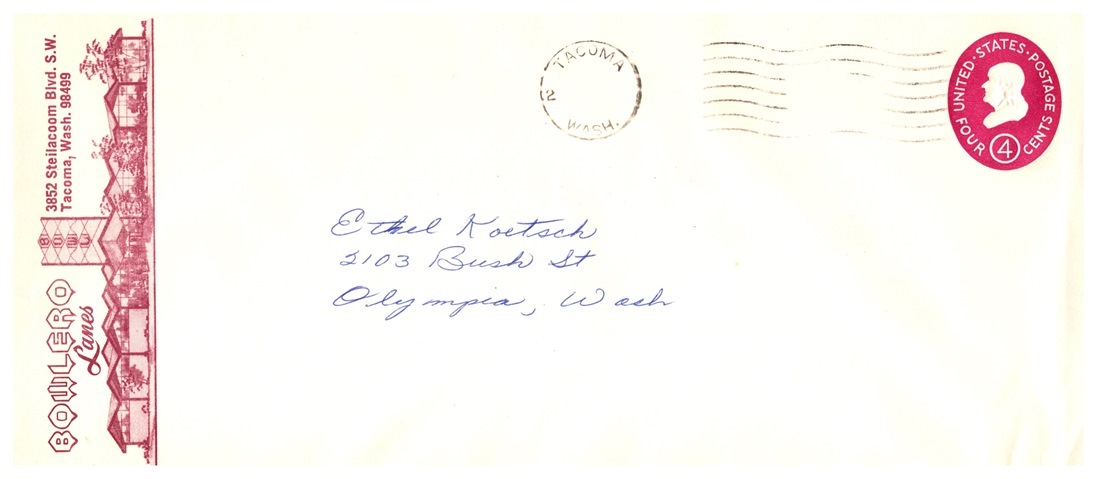 3852 Steilacoom Blvd. S.W.
Tacoma, Wash. 98499
BOWL
BOWLERO
Lanes
TACOMA
2
WASH.
UNITED·STATES·POSTAGE
FOUR 4 CENTS
Ethel Koetsch
2103 Bush St
Olympia, Wash